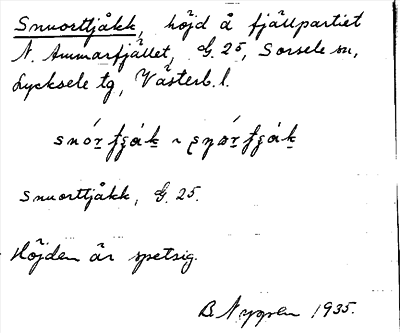 Snuorttjåkk, höjd å fjällpartiet
N. Ammarfjället, G. 25, Sorsele sn,
Lycksele tg, Västerb. l.
Snuorttjåkk, G. 25.
Höjden är spetsig.
B. Nyrén 1935.